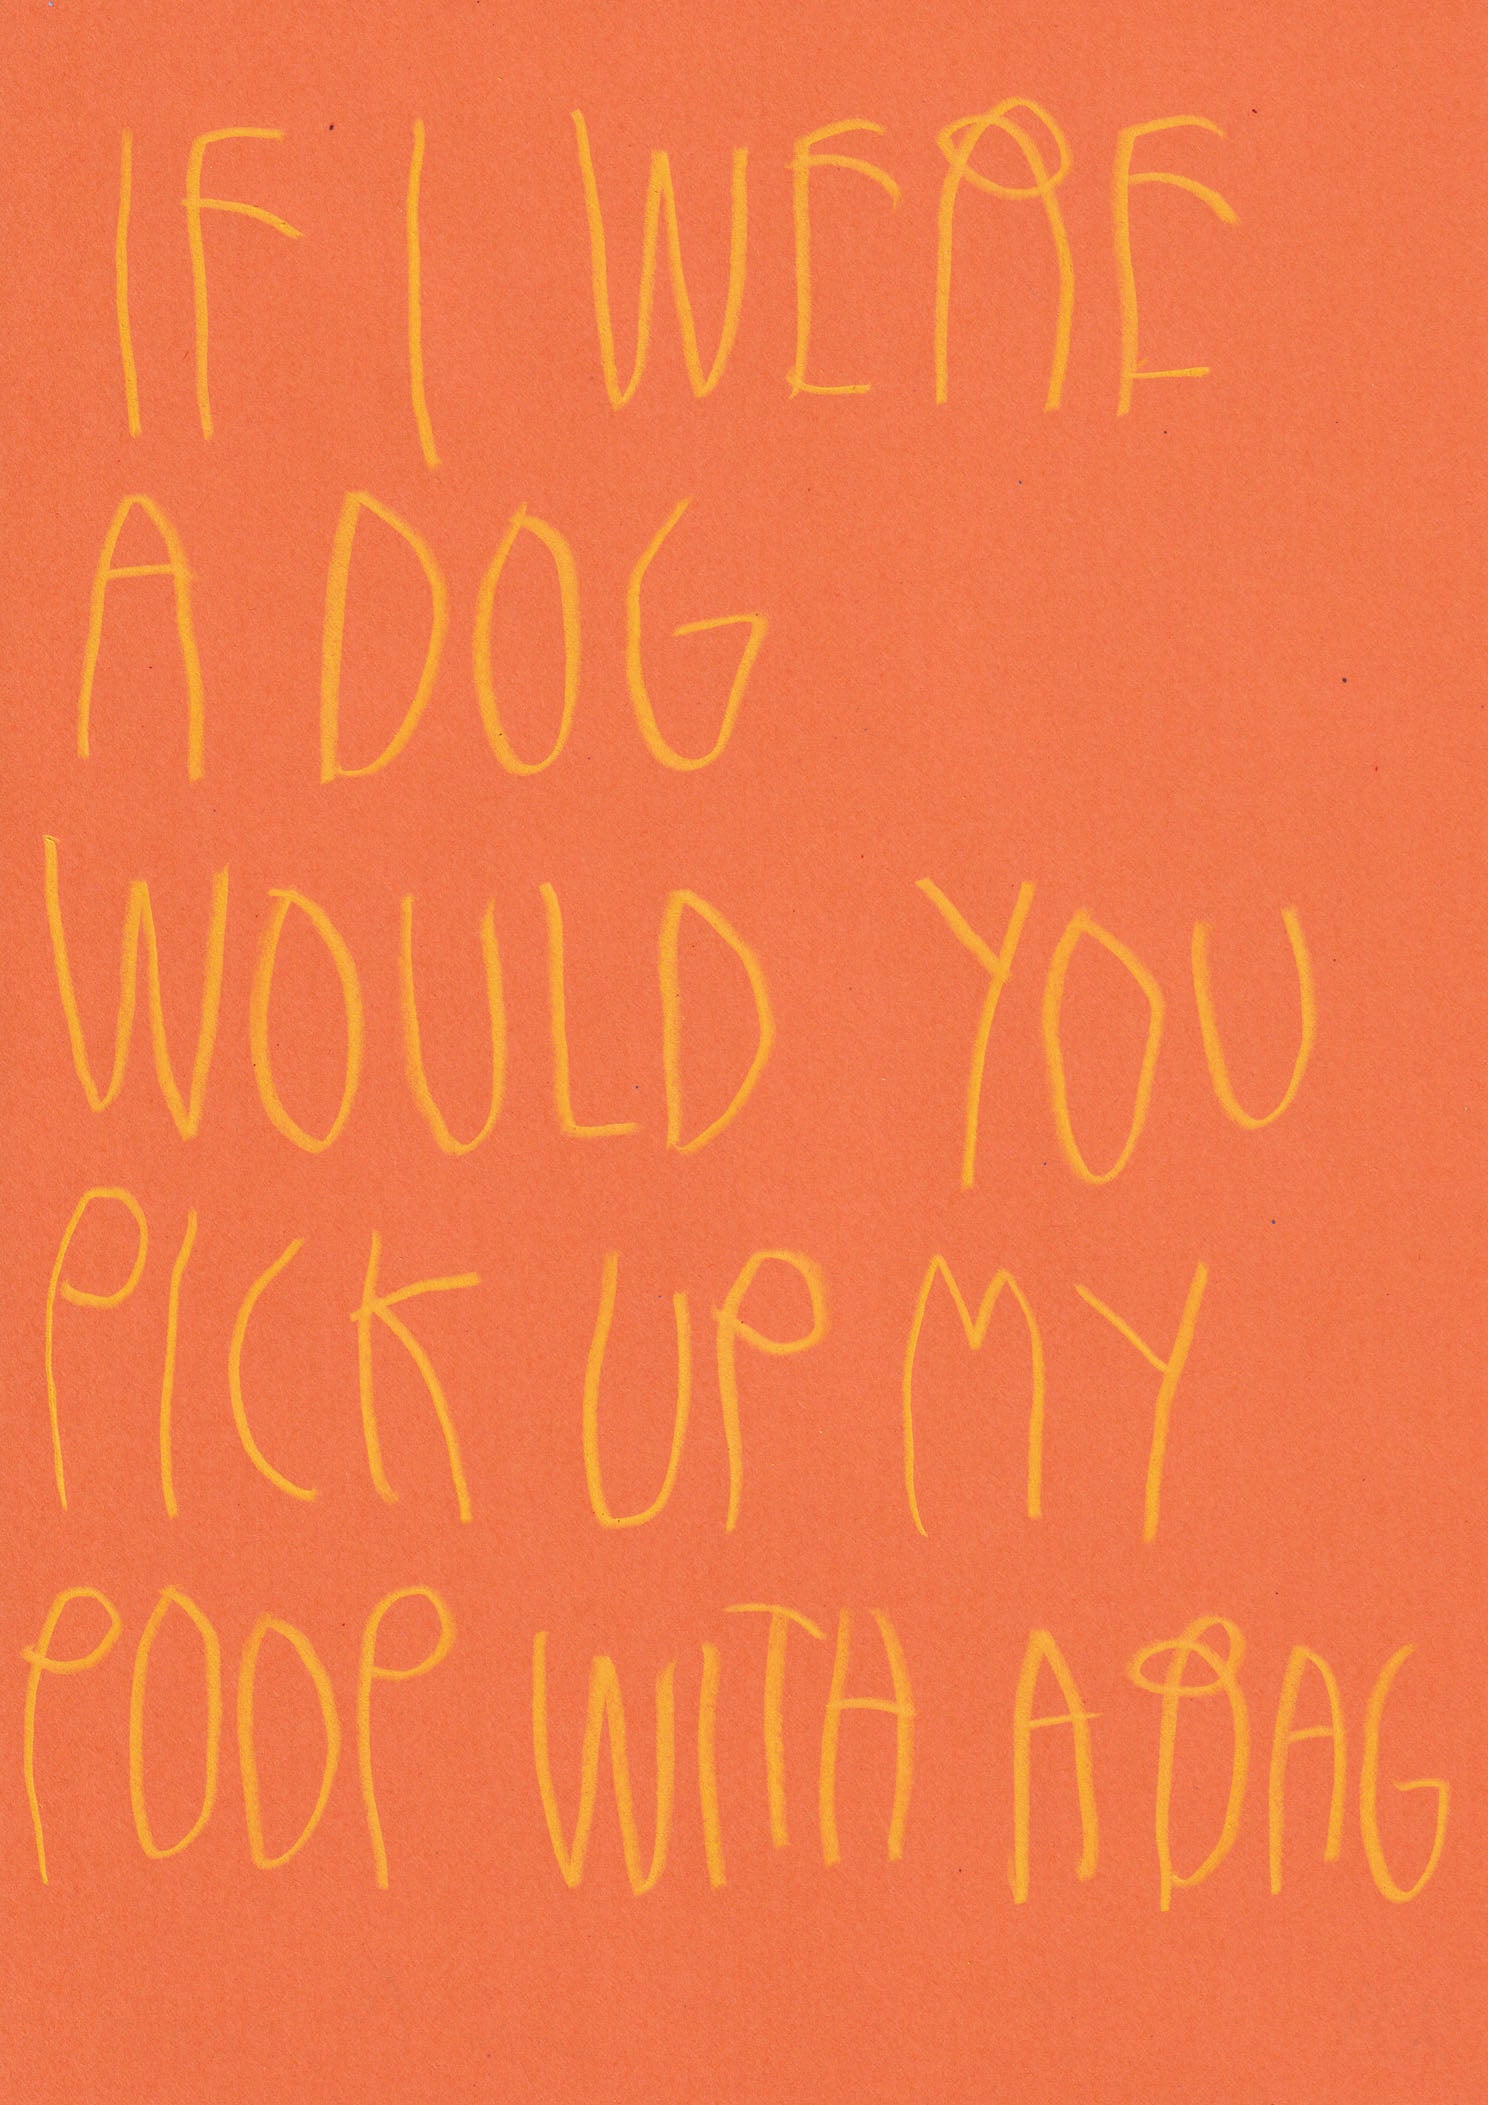 IF I WERE
A DOG
WOULD YOU
PICK UP MY
POOP WITH A BAG